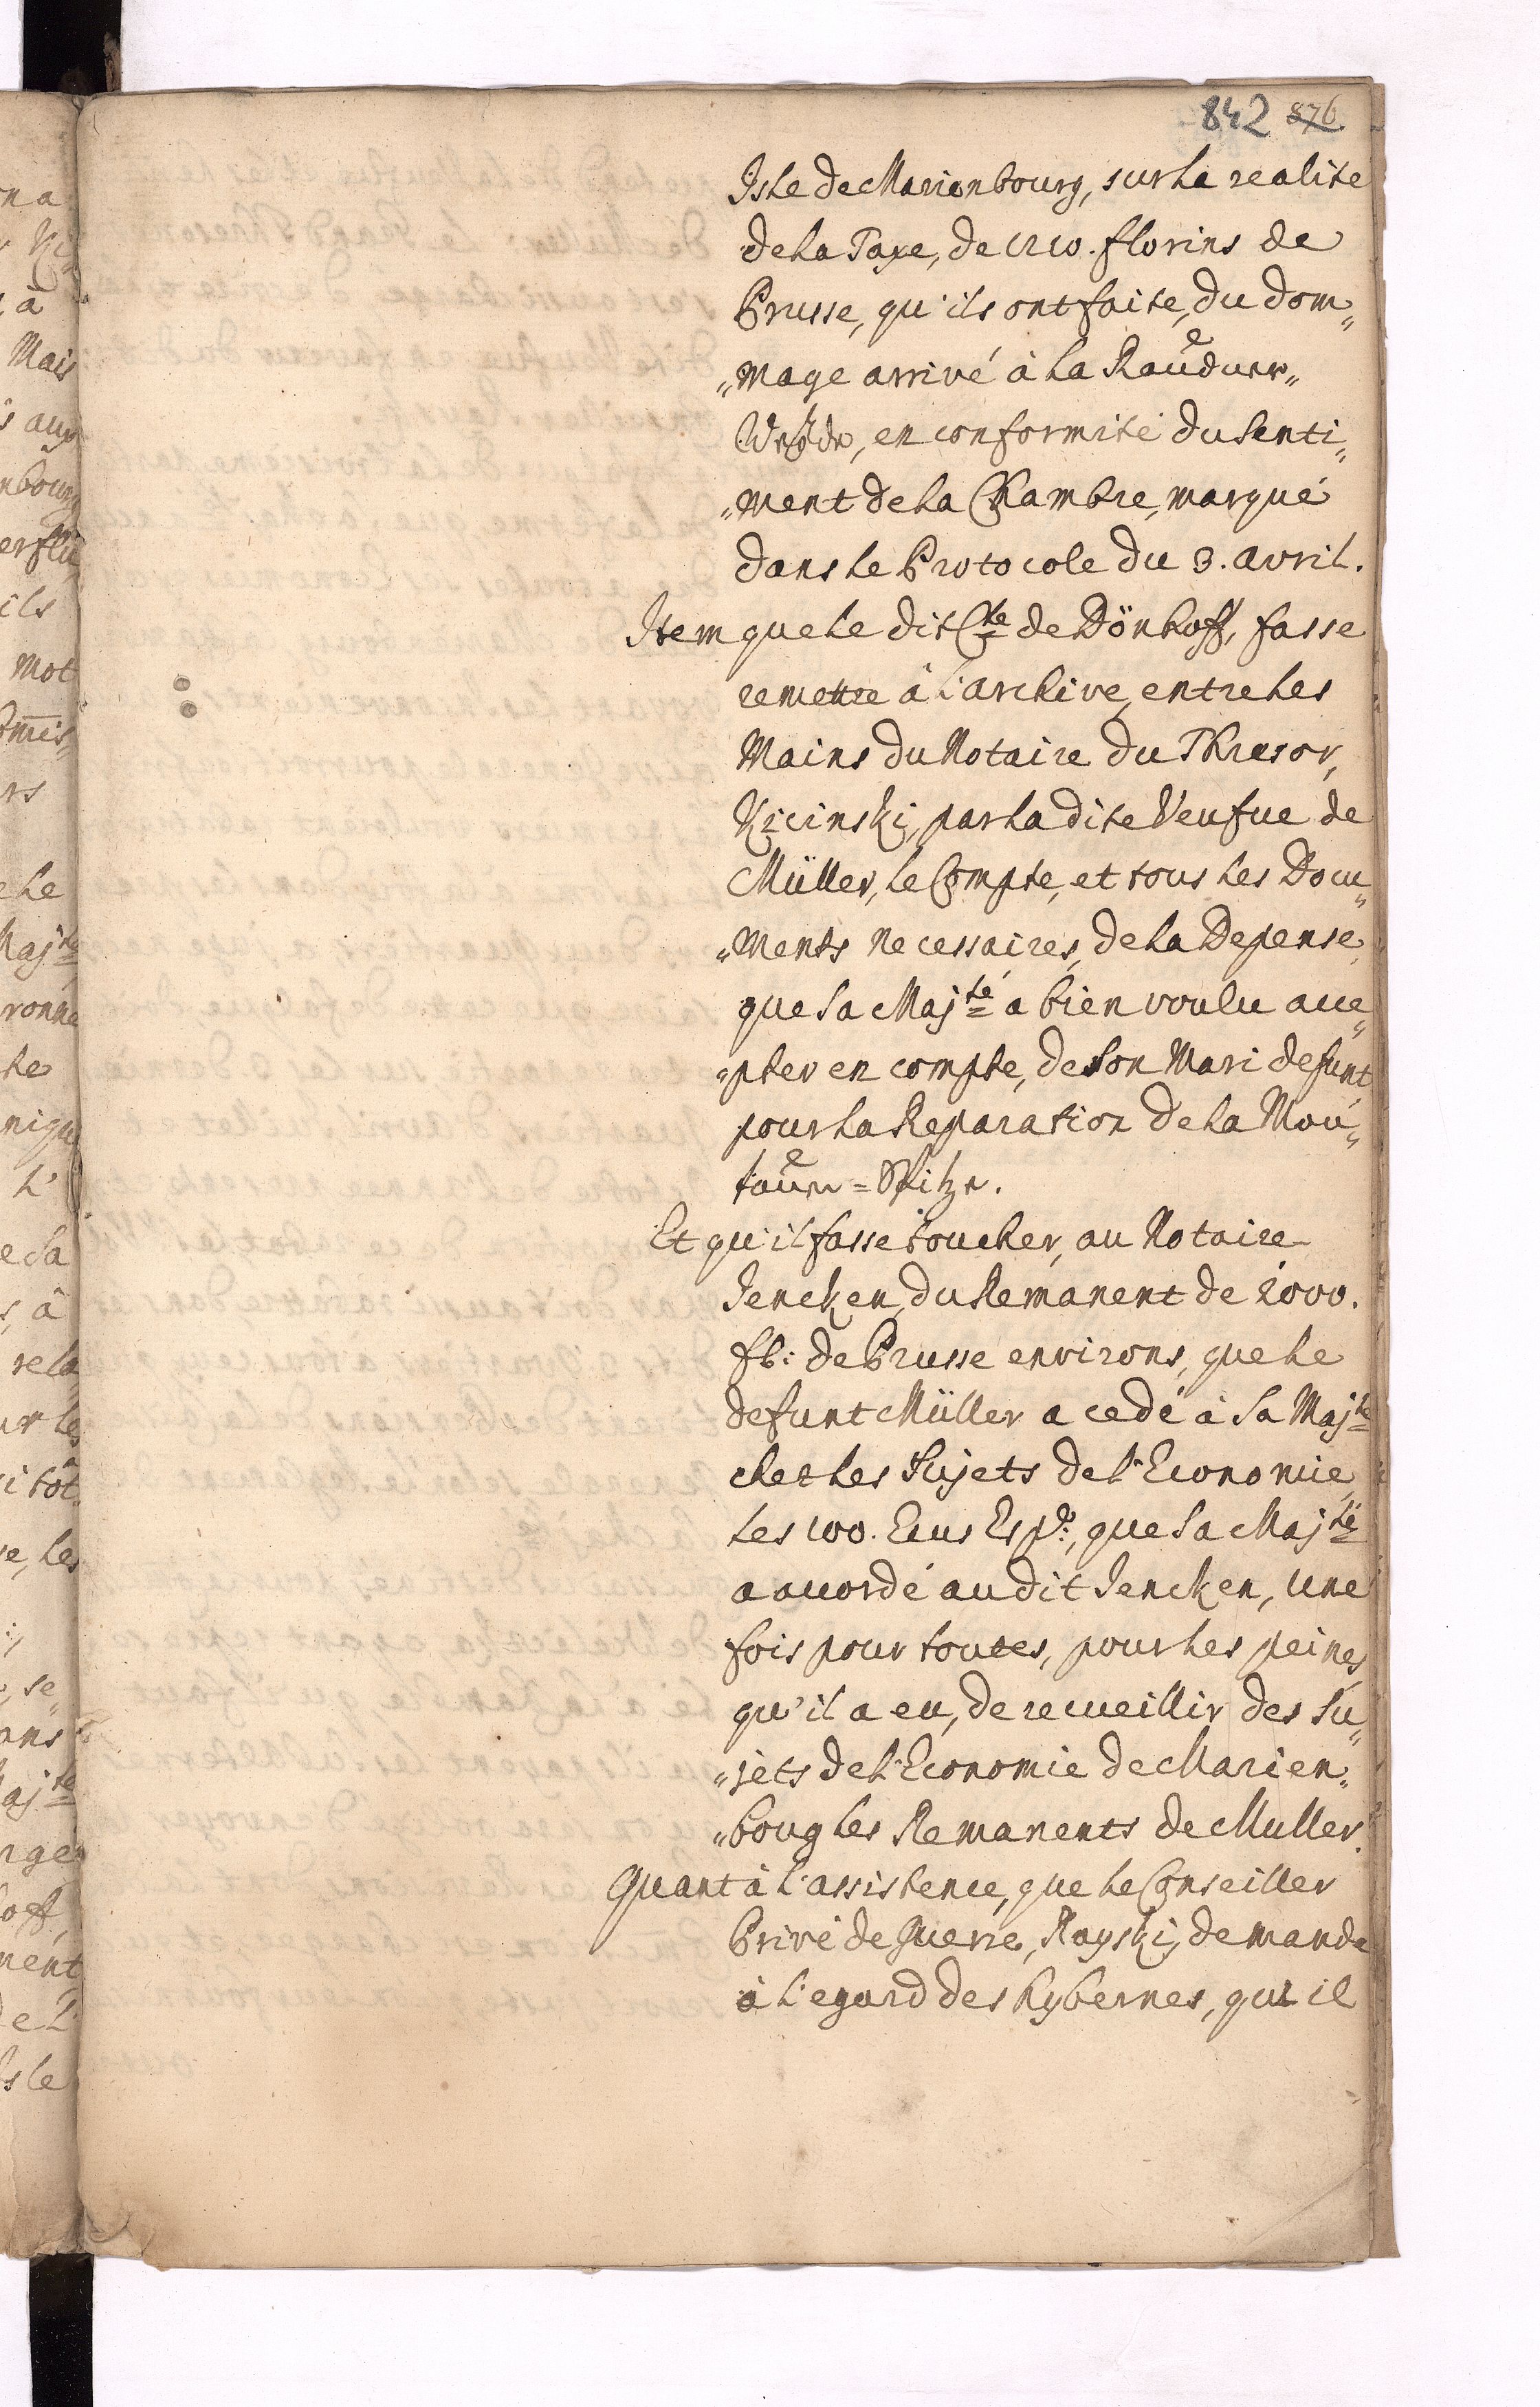 842 876
Isle de Marienbourg, sur la realité
de la Taxe, de 1210. florins de
Prusse, qu'ils ont faite, du dom„
„mage arrivé à la Raüduer„
en conformité du Senti„
„ment de la Chambre, marqué
dans le Protocole du 3. avril.
Item que le dit C<sup>te</sup> de Dönhoff, fasse
remettre à l'archive, entre les
Mains du Notaire du Thresor,
Kicinski, par la dite Veufue de
Müller, le Compte, et tous les Docu„
„ments necessaires, de la Depense,
que Sa Maj<sup>té</sup> a bien voulu acce„
„pter en compte, de Son Mari defunt,
pour la Reparation de la Mon„
tauer=Spitze.
Et qu'il fasse toucher, au Notaire
Jencken, du Remanent de 2000.
fl: de Prusse environs, que le
defunt Müller a cedé à Sa Maj<sup>té</sup>
chez les Sujets de l'Economie,
les 100. Ecus Esp:, que Sa Maj<sup>té</sup>
a accordé au dit Jencken, une
fois pour toutes, pour les peines,
qu'il a eu, de recueillir des Su„
„jets de l'Economie de Marien„
„boug les Remanents de Muller.
Quant à l'assistence, que le Conseiller
Privé de Guerre, Rayski, demande
à l'egard des hybernes, qu'il